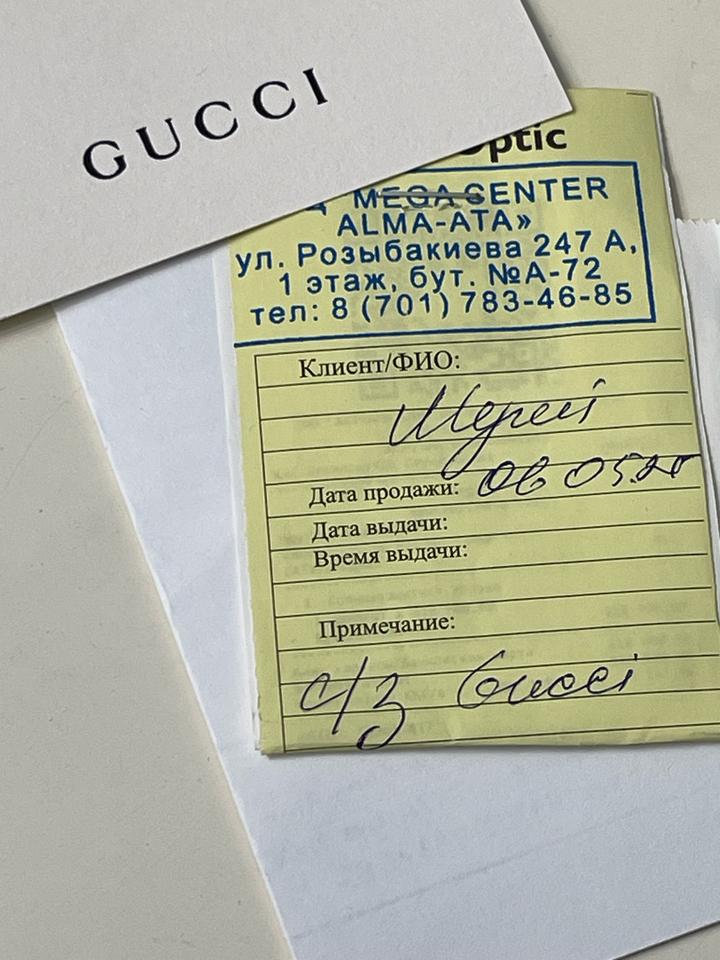 GUCCI
Optic
MEGA CENTER
ALMA-ATA»
ул. Розыбакиева 247 А,
1 этаж, бут. №А-72
тел: 8 (701) 783-46-85
Клиент/ФИО:
Мерей
Дата продажи: 06 05.
Дата выдачи:
Время выдачи:
Примечание:
с/з Gucci